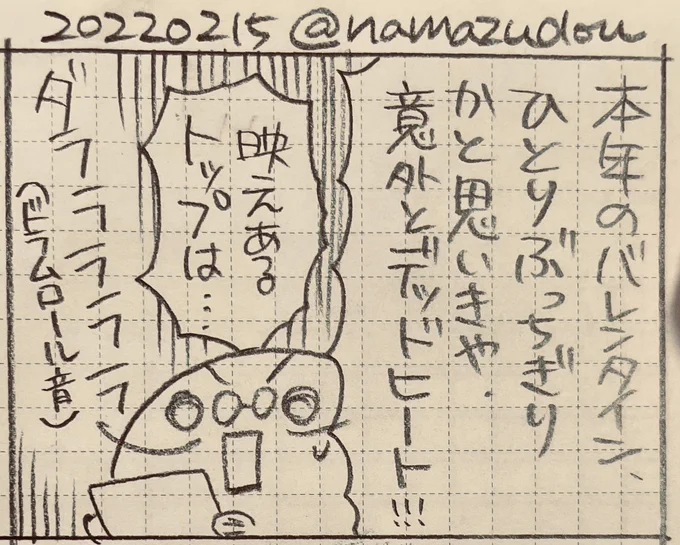 20220215 @namazudou
本年のバレンタイン、
ひとりぶっちぎり
かと思いきや、
意外とデッドヒート!!!
映えある
トップは…
ダララララララ
(ドラムロール音)